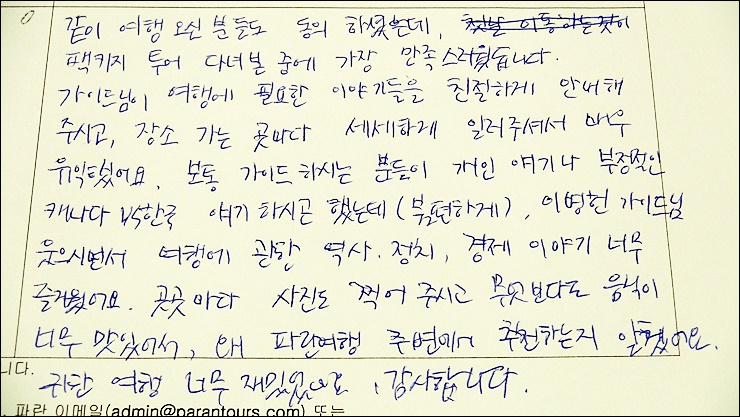 같이 여행 오신 분들도 동의 하셨는데, 첫날 이동하는것이
팩키지 투어 다녀본 중에 가장 만족스러웠습니다.
가이드님이 여행에 필요한 이야기들을 친절하게 안내해
주시고, 장소 가는 곳마다 세세하게 일러주셔서 매우
유익했어요. 보통 가이드하시는 분들이 개인 얘기나 부정적인
캐나다 한국 얘기 하시곤 했는데(불편하게), 이병헌 가이드님
웃으시면서 여행에 관한 역사. 정치, 경제 이야기 너무
즐거웠어요. 곳곳마다 사진도 찍어 주시고 무엇보다도 음식이
너무 맛있어서, 왜 파란여행 주변에서 추천하는지 알겠어요.
니다. 파란 여행 너무 재밌었고요, 감사합니다.
파란 이메일(admin@parantours.com) 또는